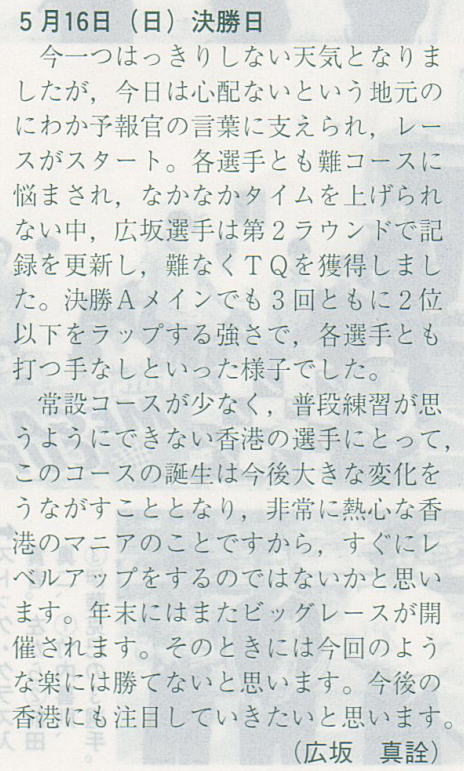 5月16日（日）決勝日
　今一つはっきりしない天気となりま
したが，今日は心配ないという地元の
にわか予報官の言葉に支えられ，レー
スがスタート。各選手とも難コースに
悩まされ，なかなかタイムを上げられ
ない中，広坂選手は第２ラウンドで記
録を更新し，難なくＴＱを獲得しまし
た。決勝Ａメインでも３回ともに２位
以下をラップする強さで，各選手とも
打つ手なしといった様子でした。
　常設コースが少なく，普段練習が思
うようにできない香港の選手にとって，
このコースの誕生は今後大きな変化を
うながすこととなり，非常に熱心な香
港のマニアのことですから，すぐにレ
ベルアップをするのではないかと思い
ます。年末にはまたビッグレースが開
催されます。そのときには今回のよう
な楽には勝てないと思います。今後の
香港にも注目していきたいと思います。
（広坂　真詮）